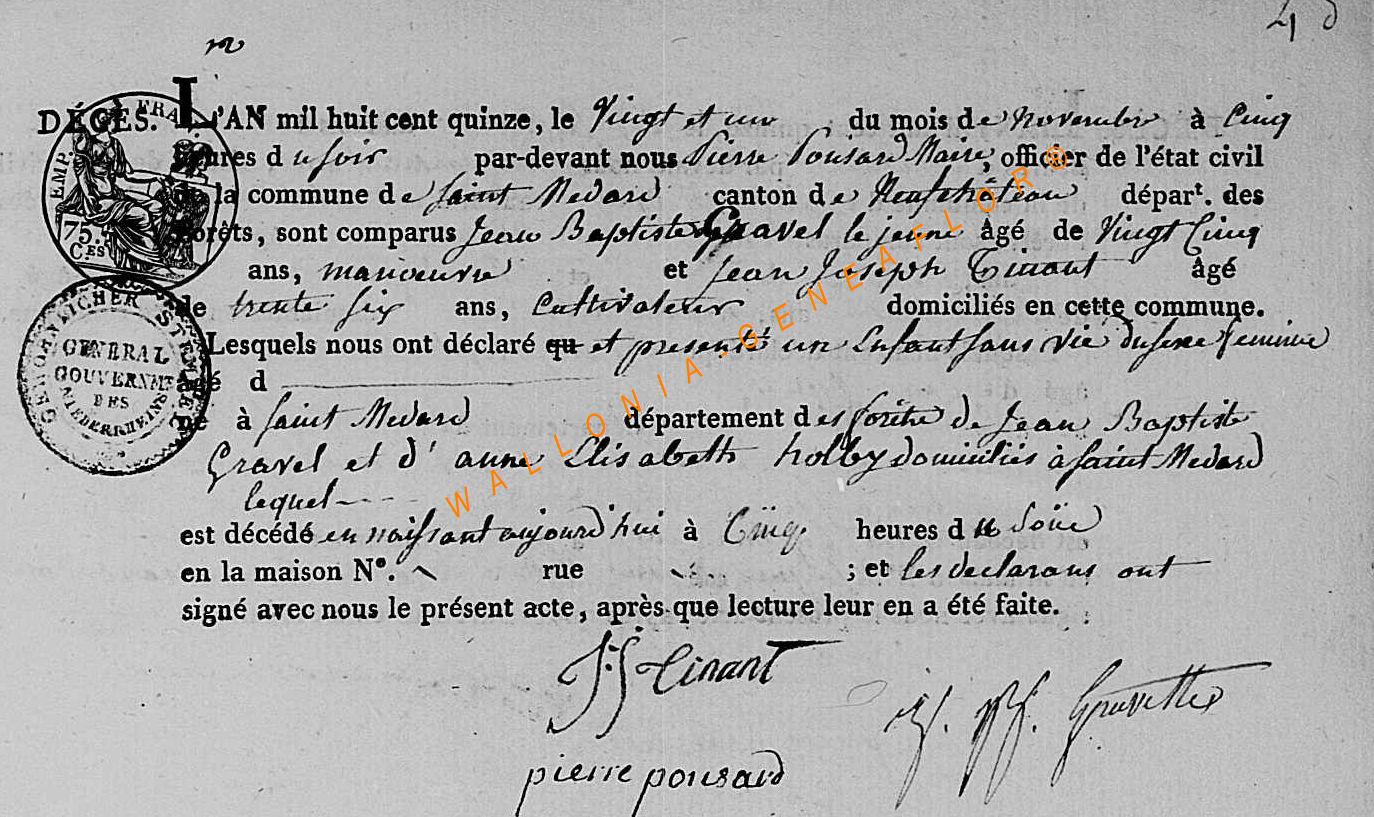 4
DÉCÈS. L'AN mil huit cent quinze, le Vingt et un du mois de novembre à Cinq
heures du soir par-devant nous Pierre Pousard Maire, officier de l'état civil
de la commune de Saint Medard canton de Neufchâteau départ. des
Forêts, sont comparus Jean Baptiste Gravel le jeune âgé de Vingt Cinq
ans, manoeuvre et Jean Joseph Tinant âgé
de trente six ans, Cultivateur domiciliés en cette commune.
Lesquels nous ont déclaré qu et presenté un Enfant sans vie du sexe feminin
âgé d
né à Saint Medard département des forêts de Jean Baptiste
Gravel et d'anne Elisabeth holby domiciliés à Saint Medard
lequel
est décédé en naissant aujourd'hui à Cinq heures du
en la maison N°. rue ; et les declarans ont
signé avec nous le présent acte, après que lecture leur en a été faite.
J J Tinant
Gravette
pierre pousard
EMP. FRA
75.
CES
STEMPEL
GENERAL
GOUVERNMT
DES
NIEDERRHEINS
WALLONIA.GENEAFLOR®